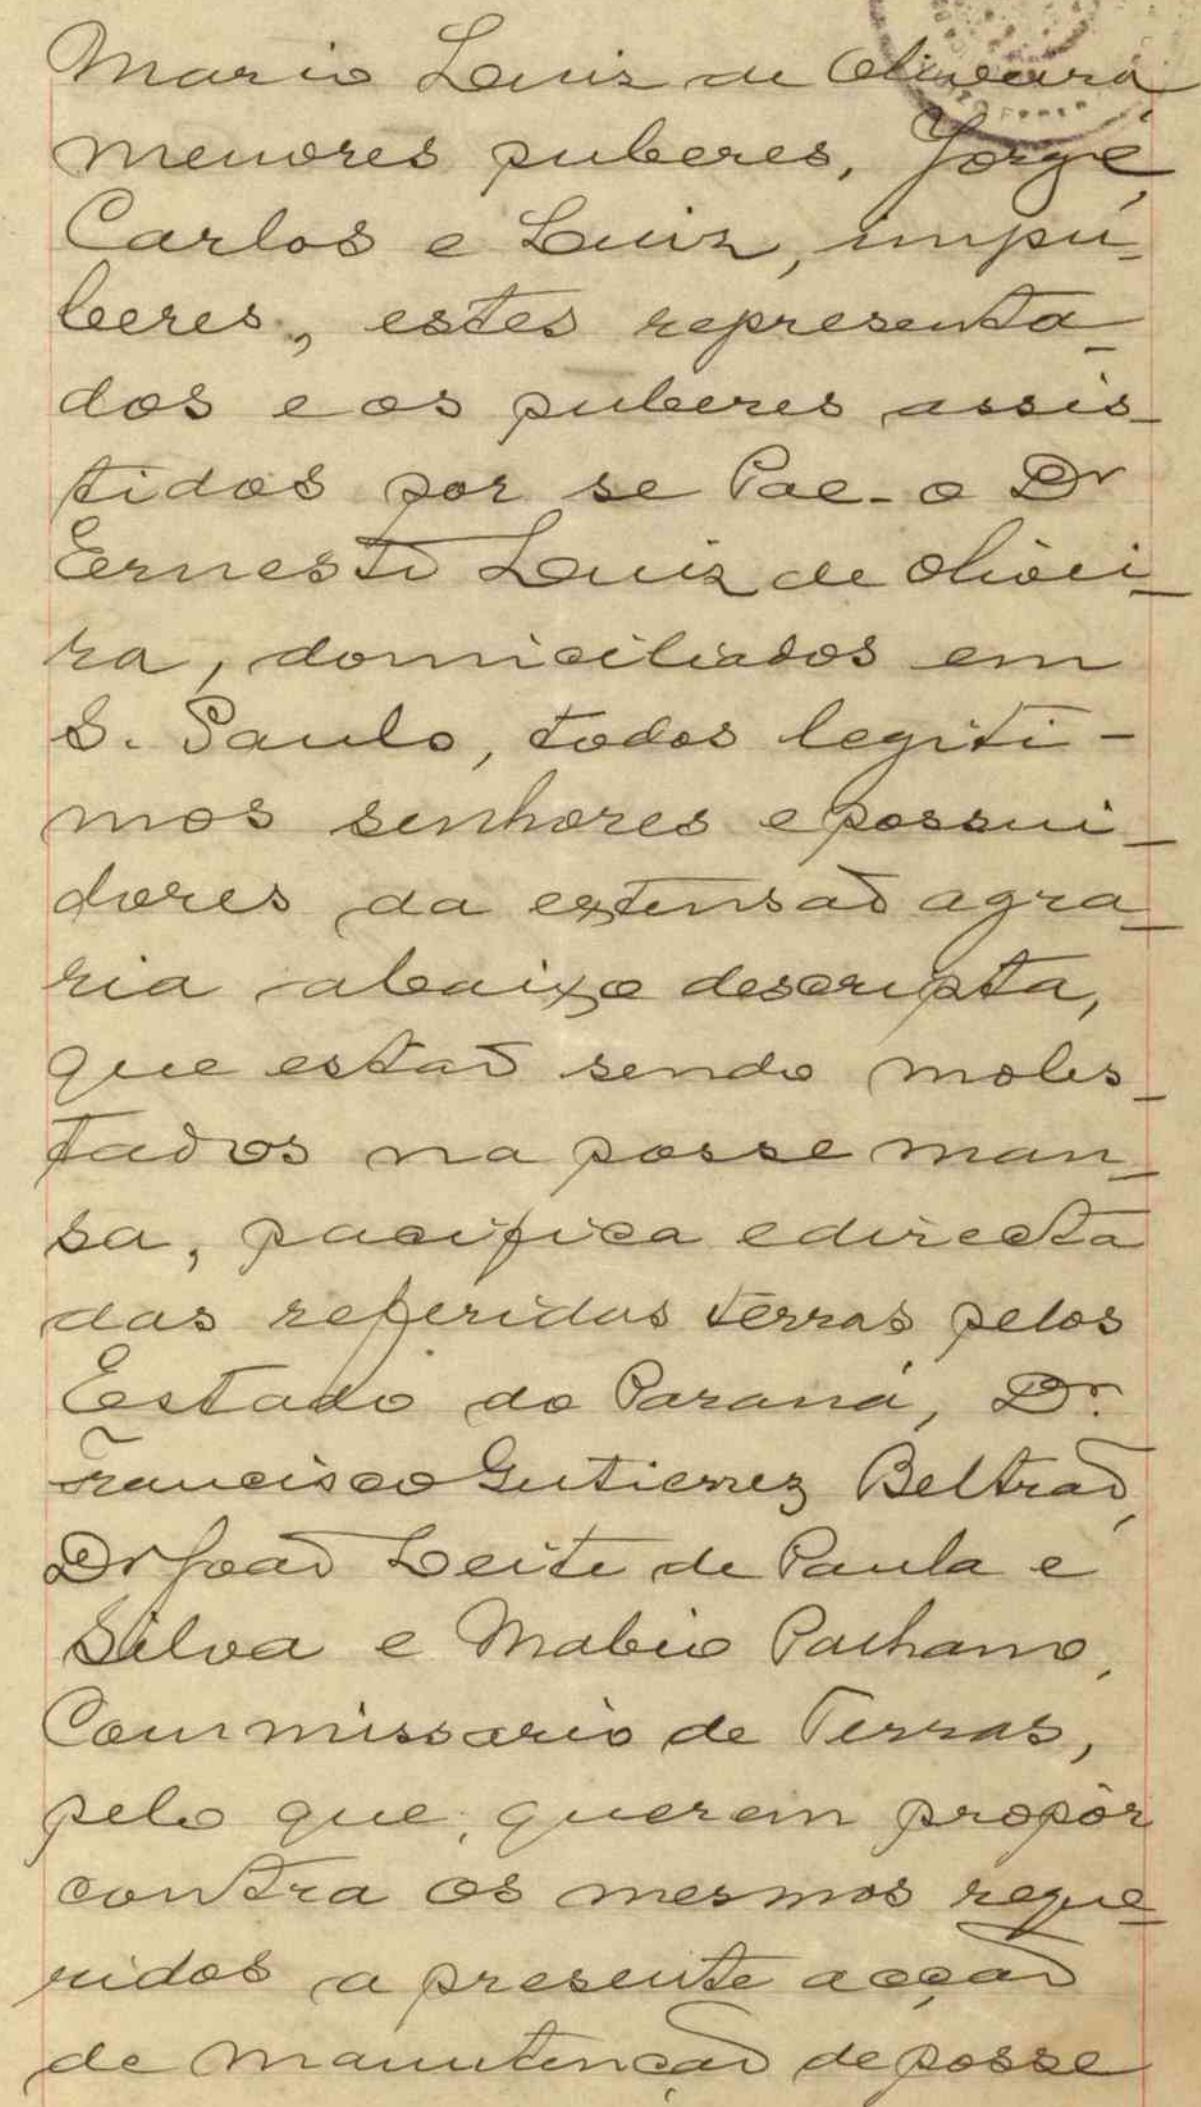 Mario Luiz de Oliveira
menores puberes, Jorge,
Carlos e Luiz, impu-
beres, estes representa-
dos e os puberes assis-
tidos por se Pae - o Dr
Ernesto Luiz de Olivei-
ra, domiciliados em
S. Paulo, todos legiti-
mos senhores e possui-
dores da extensão agra-
ria abaixo descripta,
que estão sendo moles-
tados na posse man-
sa, pacifica e directa
das referidas terras pelos
Estado do Paraná, Dr.
Francisco Gutierrez Beltrão,
Dr João Leite de Paula e
Silva e Mabio Palhano,
Commissario de Terras,
pelo que, querem propôr
contra os mesmos reque-
ridos a presente acção
de manutenção de posse